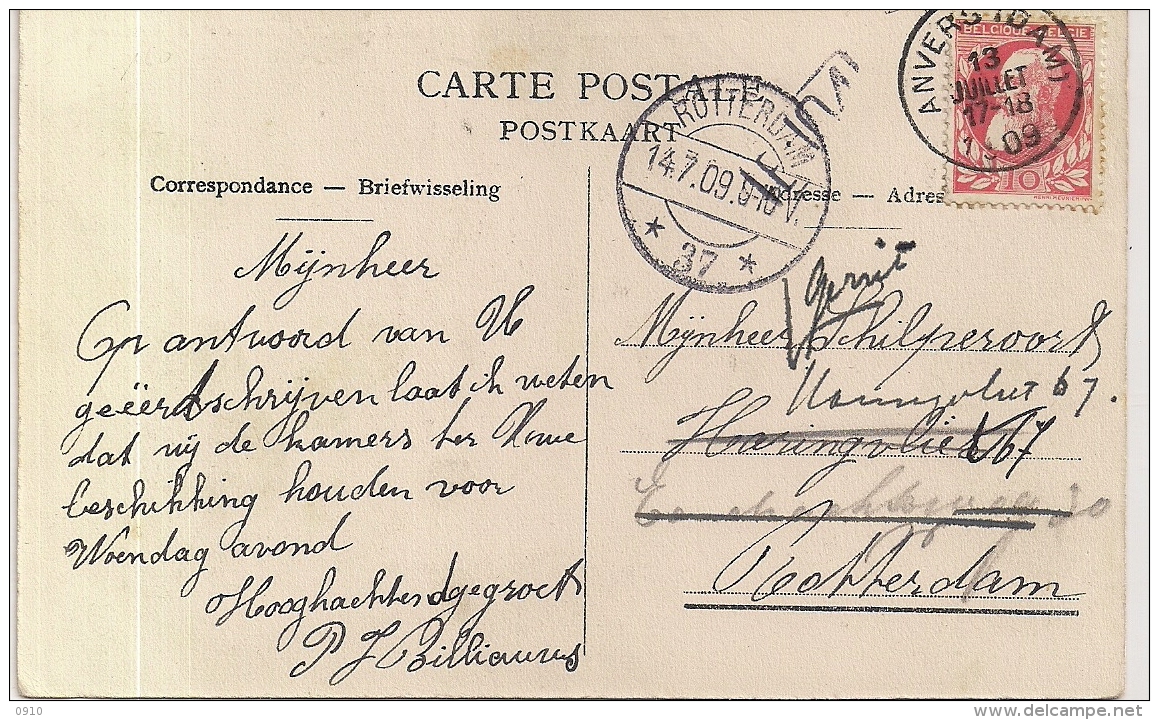 CARTE POSTALE
POSTKAART
Correspondance — Briefwisseling
Adresse — Adres
ANVERS (DAM)
13
JUILLET
17-18
09
BELGIQUE BELGIE
10
ROTTERDAM
14.7.09.9-10V.
* 37 *
Mijnheer
Op antwoord van U
geëerdschrijven laat ik weten
dat wij de kamers ter Uwe
beschikking houden voor
Woendag avond
Hooghachtendgegroet
P J Billiauws
Gerrit
Mijnheer Schilperoort
67.
Haringvliet 67
30
Rotterdam
0910
delcampe.net